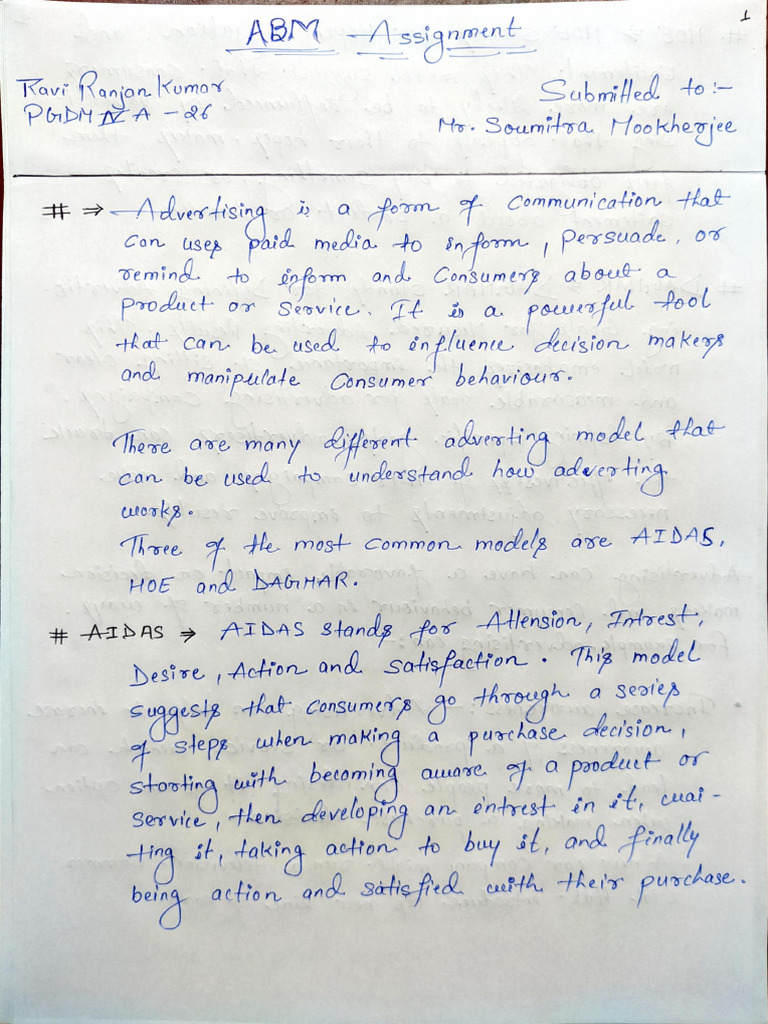 1
ABM - Assignment
Ravi Ranjan Kumar
PGDM IV A - 26
Submitted to :-
Mr. Soumitra Mookherjee
# ⇒ Advertising is a form of communication that
can uses paid media to inform, persuade, or
remind to inform and consumers about a
product or service. It is a powerful tool
that can be used to influence decision makers
and manipulate consumer behaviour.
There are many different adverting model that
can be used to understand how adverting
works.
Three of the most common models are AIDAS,
HOE and DAGMAR.
# AIDAS ⇒ AIDAS stands for Attension, Intrest,
Desire, Action and satisfaction. This model
suggests that consumers go through a series
of steps when making a purchase decision,
starting with becoming aware of a product or
service, then developing an entrest in it, wai-
ting it, taking action to buy it, and finally
being action and satisfied with their purchase.